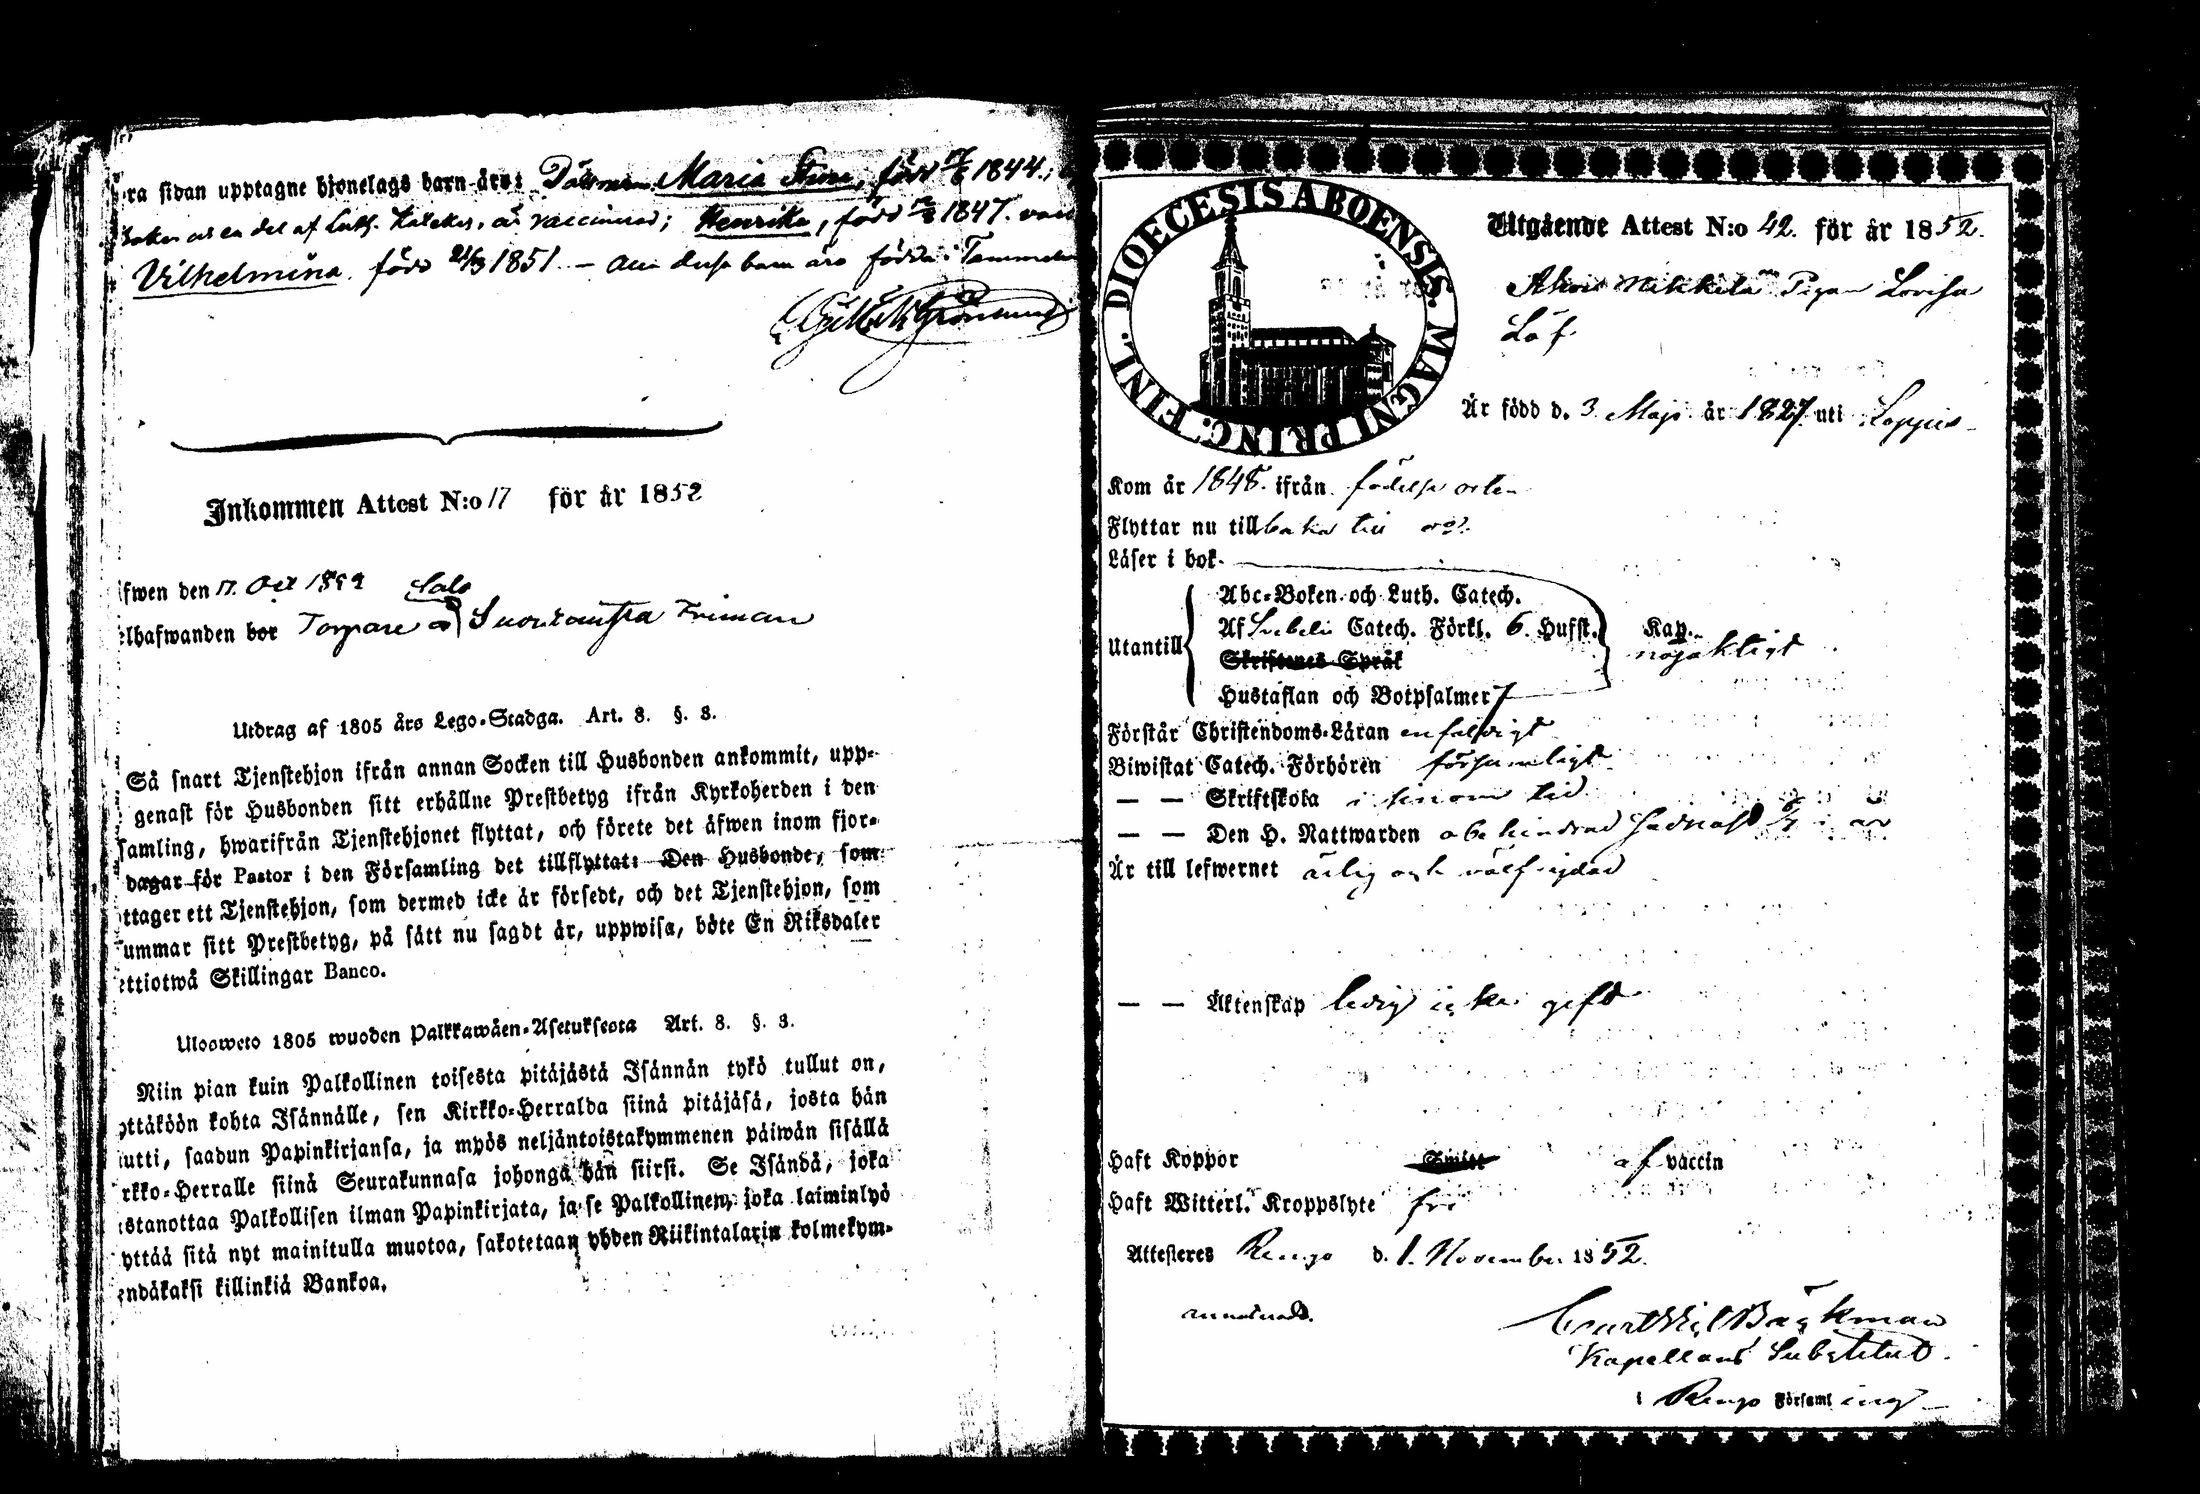 ra sidan upptagne hjonelags barn äro: Döttrarne Maria Stina, född 1844.;
en del af Luth. Kateches, är vaccinerad; Henrika, född 1847.
Vilhelmina. född 21/3 1851. — dessa barn äro födda i Tammela
Inkommen Attest N:o 17 för år 1852
fwen den 17. Oct 1852
Salo
lhafwanden bor Torpare
Utdrag af 1805 års Lego-Stadga. Art. 8. §. 3.
Så snart Tjenstehjon ifrån annan Socken till Husbonden ankommit, upp-
genast för Husbonden sitt erhållne Prestbetyg ifrån Kyrkoherden i den
samling, hwarifrån Tjenstehjonet flyttat, och förete det äfwen inom fjor-
dagar för Pastor i den Församling det tillflyttat: Den Husbonde, som
ttager ett Tjenstehjon, som dermed icke är försedt, och det Tjenstehjon, som
ummar sitt Prestbetyg, på sätt nu sagdt är, uppwisa, böte En Riksdaler
ettiotwå Skillingar Banco.
Ulosweto 1805 wuoden Palkkawäen-Asetuksesta Art. 8. §. 3.
Niin pian kuin Palkollinen toisesta pitäjästä Isännän tykö tullut on,
ottäköön kohta Isännälle, sen Kirkko-Herralda siinä pitäjäsä, josta hän
utti, saadun Papinkirjansa, ja myös neljäntoistakymmenen päiwän sisällä
rkko-Herralle siinä Seurakunnasa johonga hän siirsi. Se Isändä, joka
stanottaa Palkollisen ilman Papinkirjata, ja se Palkollinen, joka laiminlyö
yttää sitä nyt mainitulla muotoa, sakotetaan yhden Riikintalarin kolmekym-
endäkaksi killinkiä Bankoa.
DIOECESIS ABOENSIS. MAGNI PRINC. FINL.
Utgående Attest N:o 42. för år 1852.
Ahois Nikkilä Pigan Lovisa
Löf.
Är född d. 3. Maji år 1827. uti Loppis
Kom år 1848. ifrån födelse orten
Flyttar nu tillbaka till
Läser i bok
Abc-Boken och Luth. Catech.
Af Svebelii Catech. Förkl. 6. Hufst. Kap.
Utantill
Skriftenes Språk
nöjaktigt
Hustaflan och Botpsalmer
Förstår Christendoms-Läran enfaldigt
Biwistat Catech. Förhören församligt
— — Skriftskola i sinom tid
— — Den H. Nattwarden obehindrad sednast i år
Är till lefwernet ärlig och välfrejdad
— — Äktenskap ledig icke gift
Haft Koppor Smitt af vaccin
Haft Witterl. Kroppslyte fri
Attesteres Rengo d. 1. November 1852.
annoterad.
Bäckman
Kapellans Substitut.
i Rengo Församling